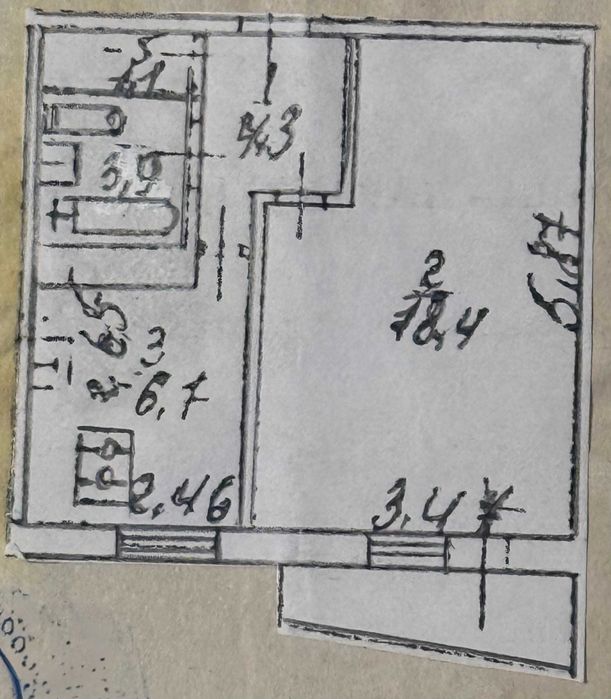 5
1,1
1
4,3
3,9
2
18,4
5,87
6,5
3
6,7
2,46
3,47